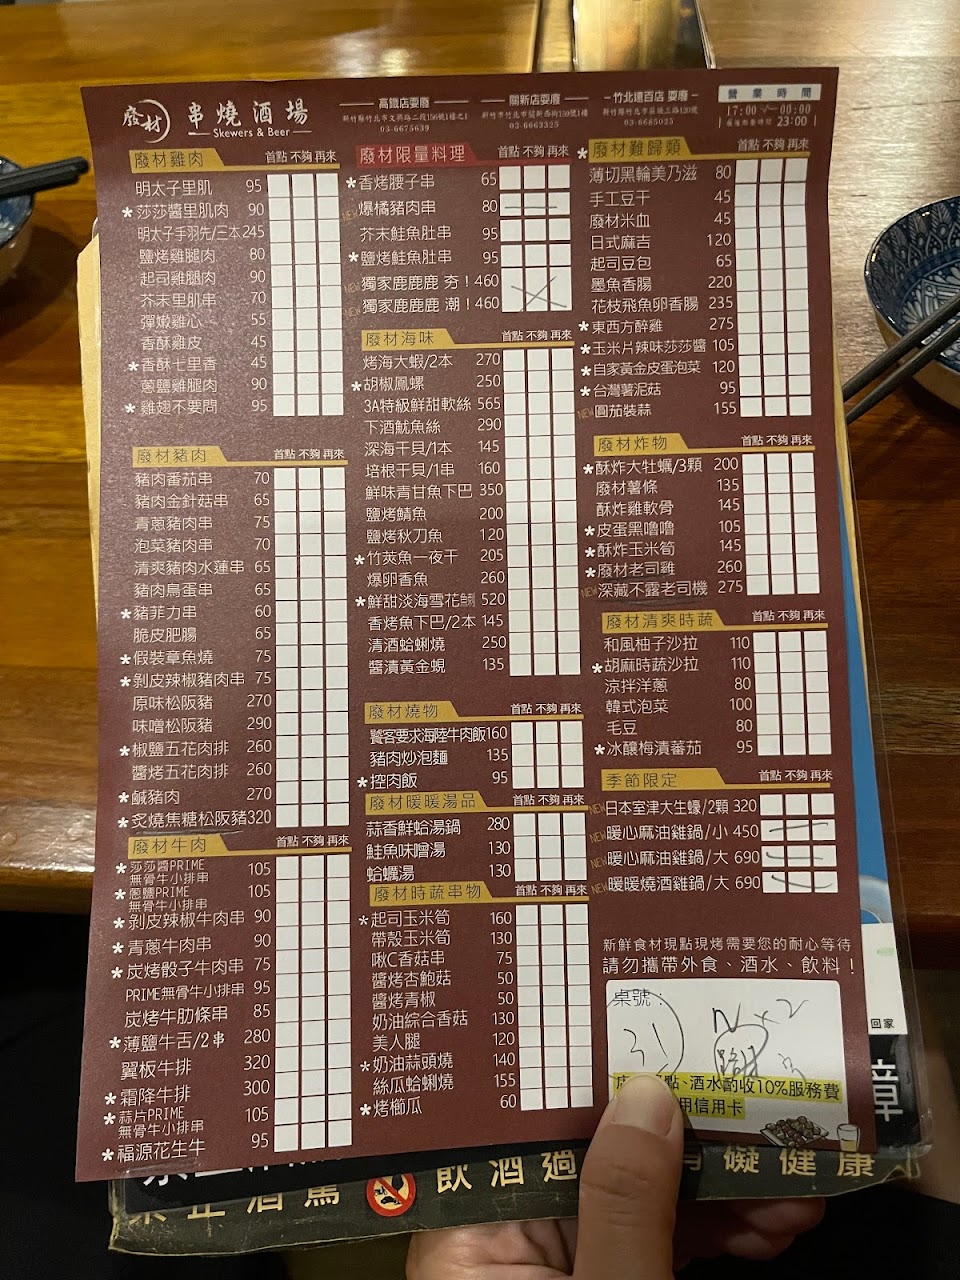 廢材 串燒酒場
Skewers & Beer
高鐵店耍廢
新竹縣竹北市文興路二段156號1樓之1
03-6675639
關新店耍廢
新竹市竹北市關新西街159號1樓
03-6663325
竹北遠百店 耍廢
新竹縣竹北市莊敬三路120號
03-6685025
營業時間
17:00 00:00
最後點餐時間 23:00
廢材雞肉 首點 不夠 再來
明太子里肌 95
*莎莎醬里肌肉 90
明太子手羽先/三本 245
鹽烤雞腿肉 80
起司雞腿肉 90
芥末里肌串 70
彈嫩雞心 55
香酥雞皮 45
*香酥七里香 45
蔥鹽雞腿肉 90
*雞翅不要問 95
廢材豬肉 首點 不夠 再來
豬肉番茄串 70
豬肉金針菇串 65
青蔥豬肉串 75
泡菜豬肉串 70
清爽豬肉水蓮串 65
豬肉鳥蛋串 65
*豬菲力串 60
脆皮肥腸 65
*假裝章魚燒 75
*剝皮辣椒豬肉串 75
原味松阪豬 270
味噌松阪豬 290
*椒鹽五花肉排 260
醬烤五花肉排 260
*鹹豬肉 270
*炙燒焦糖松阪豬 320
廢材牛肉 首點 不夠 再來
*莎莎醬PRIME
無骨牛小排串 105
*蔥鹽PRIME
無骨牛小排串 105
*剝皮辣椒牛肉串 90
*青蔥牛肉串 90
*炭烤骰子牛肉串 75
PRIME無骨牛小排串 95
炭烤牛肋條串 85
*薄鹽牛舌/2串 280
翼板牛排 320
*霜降牛排 300
*蒜片PRIME
無骨牛小排串 105
*福源花生牛 95
廢材限量料理 首點 不夠 再來
*香烤腰子串 65
NEW 爆橘豬肉串 80
芥末鮭魚肚串 95
*鹽烤鮭魚肚串 95
NEW 獨家鹿鹿鹿 夯！460
NEW 獨家鹿鹿鹿 潮！460
廢材海味 首點 不夠 再來
烤海大蝦/2本 270
*胡椒鳳螺 250
3A特級鮮甜軟絲 565
下酒魷魚絲 290
深海干貝/1本 145
培根干貝/1串 160
鮮味青甘魚下巴 350
鹽烤鯖魚 200
鹽烤秋刀魚 120
*竹莢魚一夜干 205
爆卵香魚 260
*鮮甜淡海雪花鯛 520
香烤魚下巴/2本 145
清酒蛤蜊燒 250
醬漬黃金蜆 135
廢材燒物 首點 不夠 再來
饕客要求海陸牛肉飯 160
豬肉炒泡麵 135
*控肉飯 95
廢材暖暖湯品 首點 不夠 再來
蒜香鮮蛤湯鍋 280
鮭魚味噌湯 130
蛤蠣湯 130
廢材時蔬串物 首點 不夠 再來
*起司玉米筍 160
帶殼玉米筍 130
啾C香菇串 75
醬烤杏鮑菇 50
醬烤青椒 50
奶油綜合香菇 130
美人腿 120
*奶油蒜頭燒 140
絲瓜蛤蜊燒 155
*烤櫛瓜 60
*廢材難歸類 首點 不夠 再來
薄切黑輪美乃滋 80
手工豆干 45
廢材米血 45
日式麻吉 120
起司豆包 65
墨魚香腸 220
花枝飛魚卵香腸 235
*東西方醉雞 275
*玉米片辣味莎莎醬 105
*自家黃金皮蛋泡菜 120
*台灣薯泥菇 95
NEW 圓茄裝蒜 155
廢材炸物 首點 不夠 再來
*酥炸大牡蠣/3顆 200
廢材薯條 135
酥炸雞軟骨 145
*皮蛋黑嚕嚕 105
*酥炸玉米筍 145
*廢材老司雞 260
NEW 深藏不露老司機 275
廢材清爽時蔬 首點 不夠 再來
和風柚子沙拉 110
*胡麻時蔬沙拉 110
涼拌洋蔥 80
韓式泡菜 100
毛豆 80
*冰釀梅漬蕃茄 95
季節限定 首點 不夠 再來
NEW 日本室津大生蠔/2顆 320
NEW 暖心麻油雞鍋/小 450
NEW 暖心麻油雞鍋/大 690
NEW 暖暖燒酒雞鍋/大 690
新鮮食材現點現烤需要您的耐心等待
請勿攜帶外食、酒水、飲料！
桌號：
31
點、酒水酌收10%服務費
用信用卡
回家
飲酒過
有礙健康